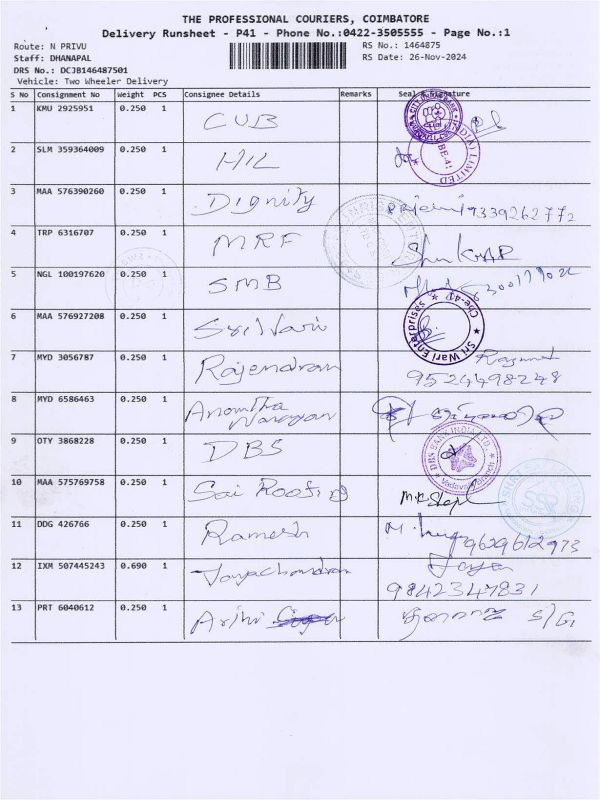 THE PROFESSIONAL COURIERS, COIMBATORE
Delivery Runsheet - P41 - Phone No.:0422-3505555 - Page No.:1
Route: N PRIVU
RS No.: 1464875
Staff: DHANAPAL
RS Date: 26-Nov-2024
DRS No.: DCJB146487501
Vehicle: Two Wheeler Delivery
S No Consignment No Weight PCS Consignee Details Remarks Seal & Signature
1 KMU 2925951 0.250 1 CUB
2 SLM 359364009 0.250 1 HIL
(INDIA) LIMITED
3 MAA 576390260 0.250 1 Dignity 9339262772
4 TRP 6316707 0.250 1 MRF
5 NGL 100197620 0.250 1 SMB
6 MAA 576927208 0.250 1 Sri Wari
Sri Wari Enterprises * Cbe-47 *
7 MYD 3056787 0.250 1 Rajendran
9524498248
8 MYD 6586463 0.250 1 Anantha
Narayan
9 OTY 3868228 0.250 1 DBS
DBS BANK INDIA LTD.
Vadavalli Branch
10 MAA 575769758 0.250 1 Sai Roofing
11 DDG 426766 0.250 1 Ramesh
9629612973
12 IXM 507445243 0.690 1 Jayachandran Jaya
9842347831
13 PRT 6040612 0.250 1